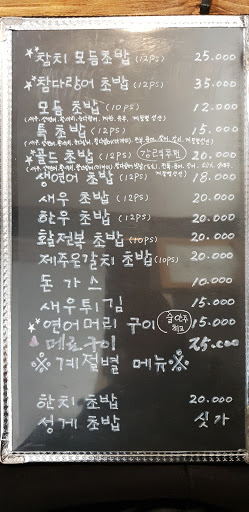 참치 모듬초밥 (12PS) 25.000
참다랑어 초밥 (12PS) 35.000
모듬 초밥 (10PS) 12.000
특 초밥 (12PS) 15.000
골드 초밥 (12PS) 강력추천 20.000
생연어 초밥 (12PS) 18.000
새우 초밥 (12PS) 20.000
한우 초밥 (12PS) 20.000
활전복 초밥 (10PS) 20.000
제주은갈치 초밥 (10PS) 20.000
돈까스 10.000
새우튀김 15.000
연어머리 구이 술안주 최고 15.000
메로구이 25.000
※계절별 메뉴※
한치 초밥 20.000
성게 초밥 싯가